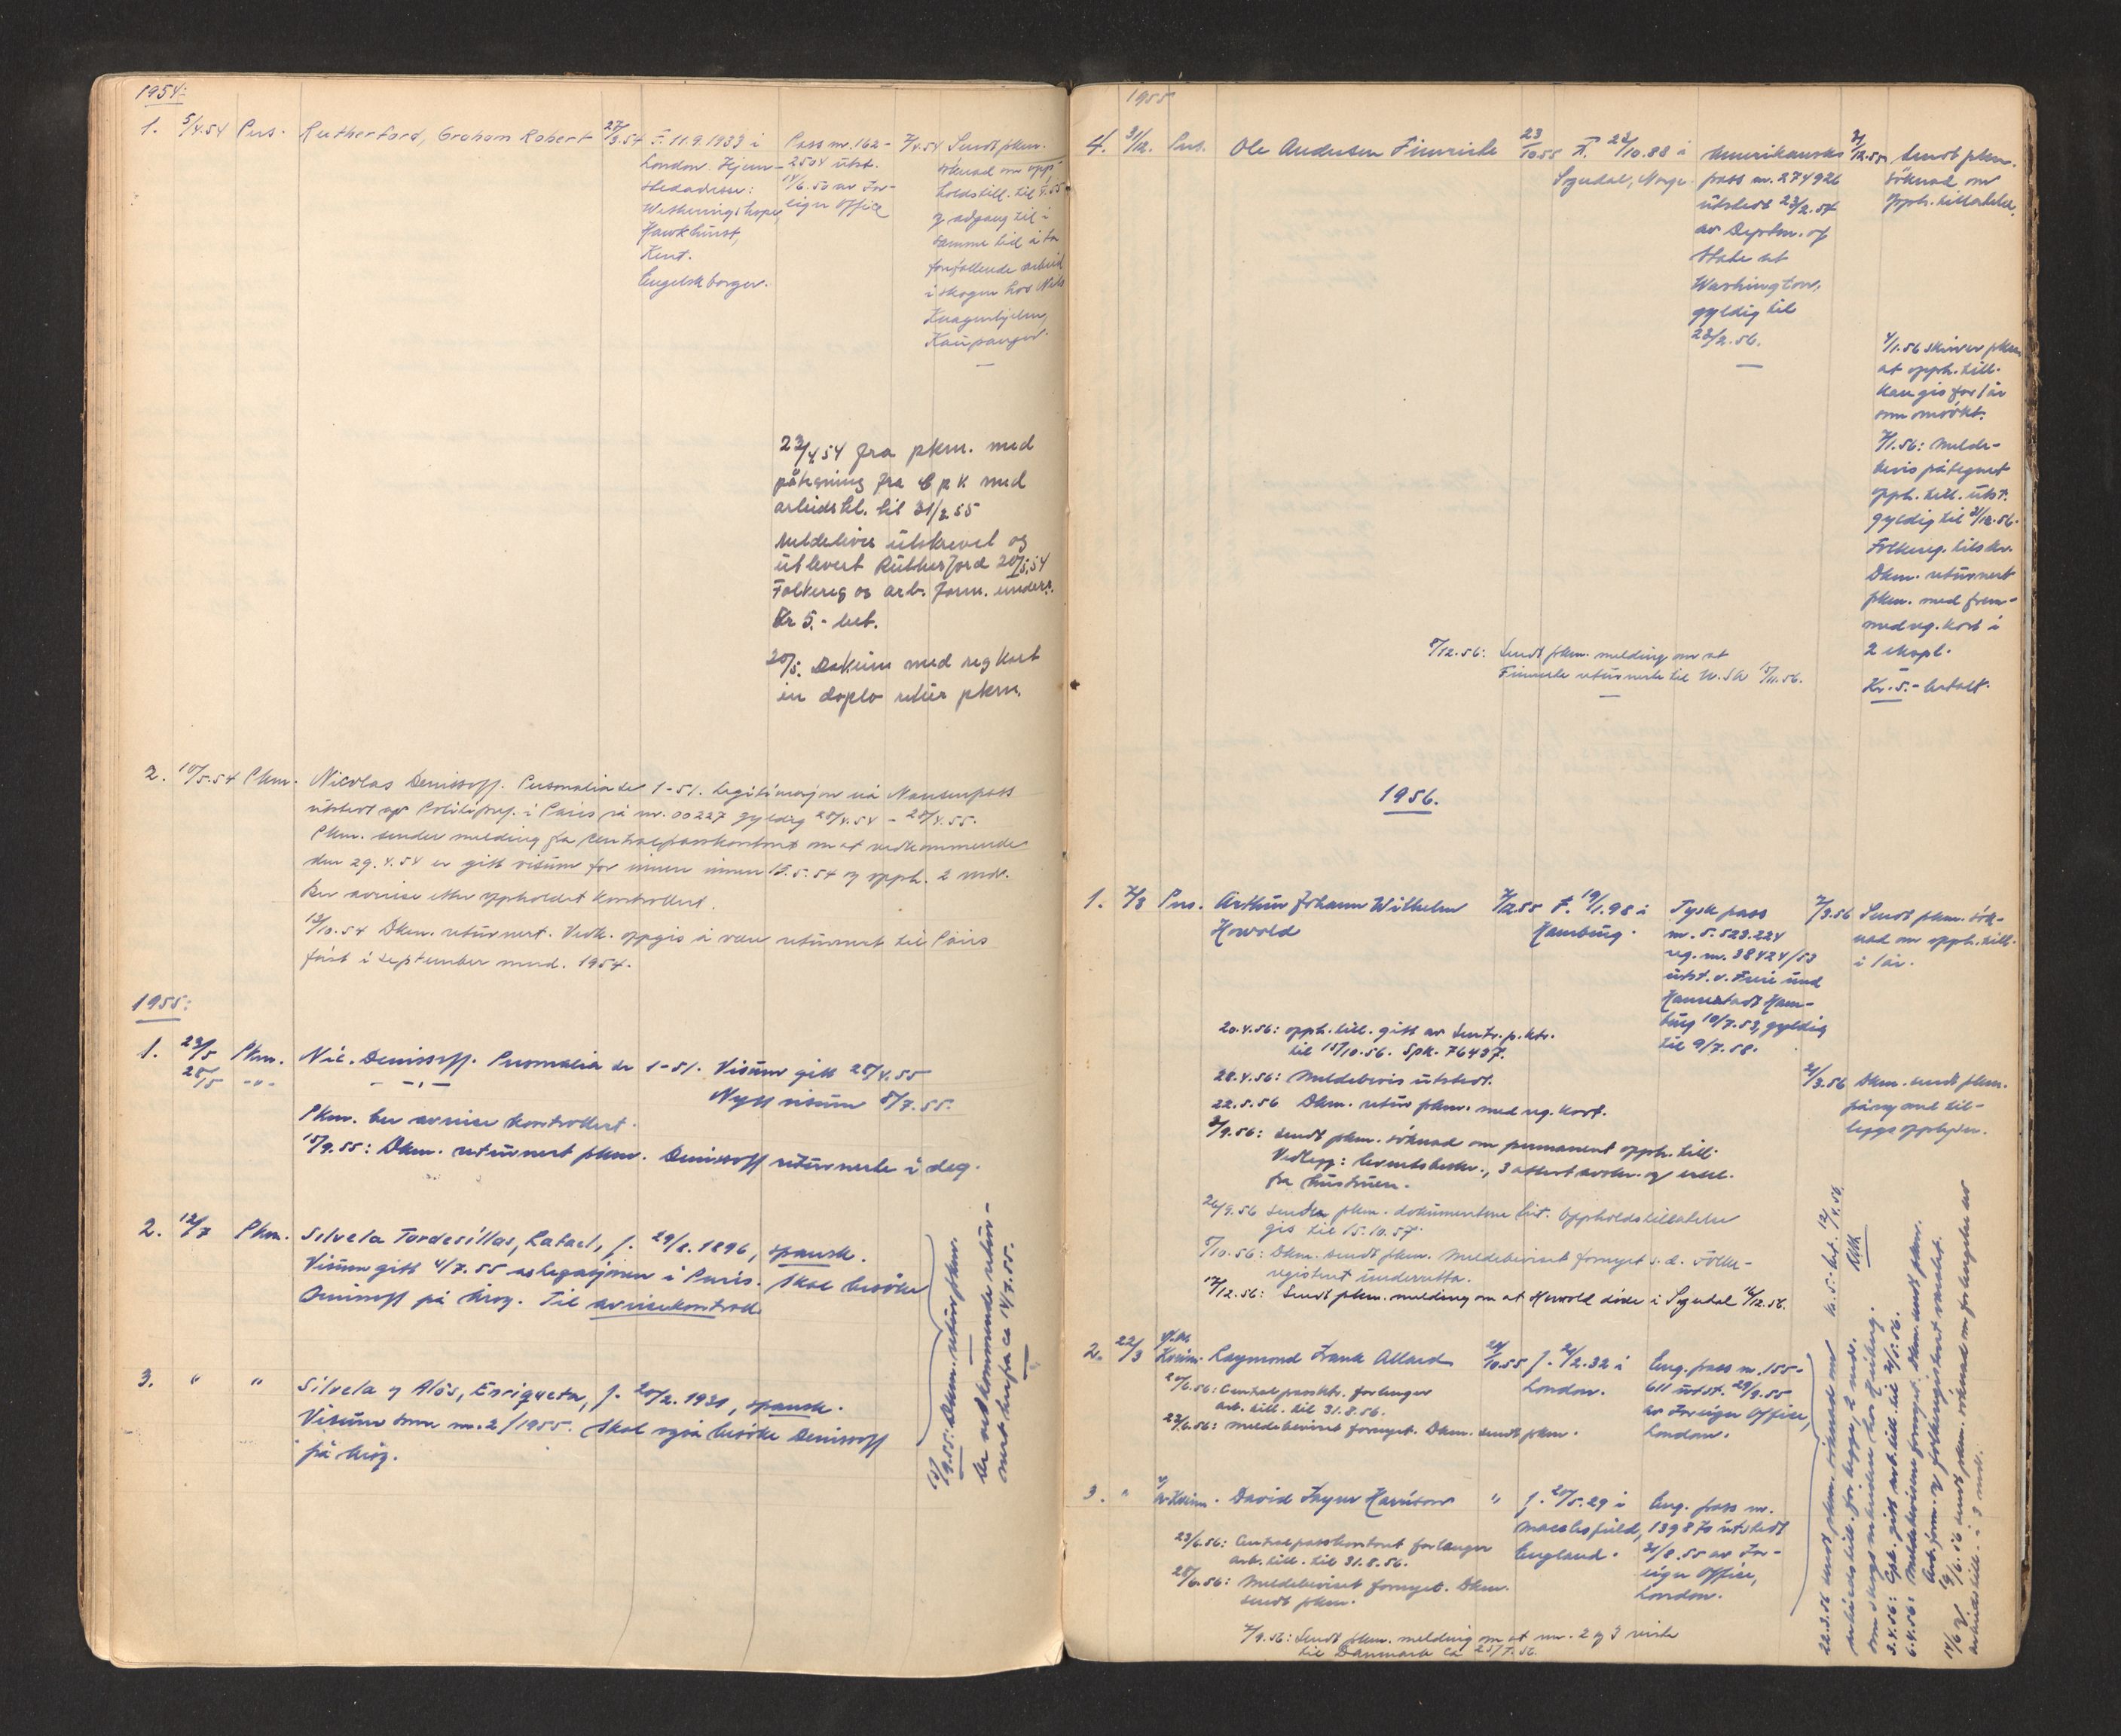 1954:
1. 5/4.54 Pers. Rutherford, Graham Robert 27/3.54 F. 11.9.1933 i
London. Hjem-
stedadresse:
Hawkhurst,
Kent.
Engelsk borger.
Pass nr. 162-
2504 utst.
14/6.50 av For-
eign Office
7/4.54 Sendt pkm.
søknad om opp-
holdstill. til
og adgang til i
samme tid å ta
forefallende arbeid
i skogen hos
Knagenhjelm,
Kaupanger.
23/4.54 fra pkm. med
påtegning fra C p k med
arbeidstil. til 31/2.55
Meldebevis utskrevet og
utlevert Rutherford 20/5.54
Folkereg og arb. form. underr.
Kr 5.- bet.
20/5. Dokum med reg kort
in duplo retur pkm.
2. 10/5.54 Pkm. Nicolas Denissoff. Personalia se 1-51. Legitimasjon nå Nansenpass
utstedt av Politipref. i Paris nr. 00227 gyldig 28/4.54 - 28/4.55.
Pkm. sender melding fra Centralpasskontoret om at vedkommende
den 29.4.54 er gitt visum for innreise innen 15.5.54 og opph. 2 mdr.
Ber avreise etter oppholdet kontrollert.
13/10.54 Dkm. returnert. Vedk. oppgis å være returnert til Paris
først i september mnd. 1954.
1955:
1. 23/5 Pkm. Nic. Denissoff. Personalia se 1-51. Visum gitt 28/4.55
28/5 -"- -"- Nytt visum 8/7.55.
Pkm. ber avreise kontrollert.
15/9.55: Dkm. returnert pkm. Denissoff returnerte i dag.
2. 12/7 Pkm. Silvela Tordesillas, Rafael, f. 29/8.1896, spansk.
Visum gitt 4/7.55 av legasjonen i Paris. Skal besøke
Denissoff på Krog. Til avreisekontroll
3. " " Silvela y Alós, Enriqueta, f. 20/2.1931, spansk.
Visum som nr. 2/1955. Skal også besøke Denissoff
på Krog.
15/9.55: Dkm. retur pkm.
Ber vedkommende retur-
nert herfra ca 14/7.55.
1955
4. 31/12. Pers. Ole Andersen Fimreite 23/10.55 F. 23/10.88 i
Sogndal, Norge.
Amerikansk
pass nr. 274926
utstedt 23/2.54
av Deptm. of
State at
Washington,
gyldig til
23/2.56.
31/12.55 Sendt pkm.
søknad om
opph. tillatelse.
4/1.56 skriver pkm.
at opph. till.
kan gis for 1 år
som omsøkt.
7/1.56: Melde-
bevis påtegnet
opph. till. utst.
gyldig til 31/12.56.
Folkereg. tilskr.
Dkm. returnert
pkm. med frem-
medreg. kort i
2 ekspl.
Kr. 5.- betalt.
8/12.56: Sendt pkm. melding om at
Fimreite returnerte til U.S.A. 15/11.56.
1956.
1. 7/3 Pers. Arthur Johann Wilhelm
Howold
7/12.55 F. 19/1.98 i
Hamburg.
Tysk pass
nr. 5.523.224
reg. nr. 38424/53
utst. v. Freie und
Hansestadt Ham-
burg 10/7.53, gyldig
til 9/7.58.
7/3.56 Sendt pkm. søk-
nad om opph. till.
i 1 år.
21/3.56 Dkm. sendt pkm.
på ny med til-
leggsopplysn.
20.4.56: opph. till. gitt av Sentr. p. ktr.
til 15/10.56. Spk. 76437.
28.4.56: Meldebevis utstedt.
22.5.56 Dkm. retur pkm. med reg. kort.
3/9.56: Sendt pkm. søknad om permanent opph. till.
Vedlegg: levnetsbeskr., 3 attestavskr. og erkl.
fra hustruen.
26/9.56 sender pkm. dokumentene hit. Oppholdstillatelse
gis til 15.10.57.
5/10.56: Dkm. sendt pkm. Meldebeviset fornyet s. d. Folke-
registeret underretta.
17/12.56: Sendt pkm. melding om at Howold døde i Sogndal 14/12.56.
2. 22/3 Raymond Frank Allard 24/10.55 f. 21/2.32 i
London.
Eng. pass nr. 155-
611 utst. 29/3.55
av Foreign Office,
London.
20/6.56: Central passktr. forlenger
arb. till. til 31.8.56.
23/6.56: Meldebeviset fornyet. Dkm. sendt pkm.
3. " David Harrison " f. 20/5.29 i
Macclesfield,
England.
Eng. pass nr.
139870 utstedt
31/8.55 av For-
eign Office,
London.
23/6.56: Centralpasskontoret forlenger
arb. till. til 31.8.56.
28/6.56: Meldebeviset fornyet. Dkm.
sendt pkm.
7/9.56: Sendt pkm. melding om at nr. 2 og 3 reiste
til Danmark ca 25/7.56.
22.3.56 sendt pkm. søknad om Kr. 5.- bet. 12/4.56.
arbeidstill. for begge, 2 mdr.
3.4.56: Cpk. gitt arb. till. til 31/5.56.
6.4.56: Meldebevisene fornyet. Dkm. sendt pkm.
Arb. form. og folkeregisteret varslet.
arbeidstill. i 3 mdr.